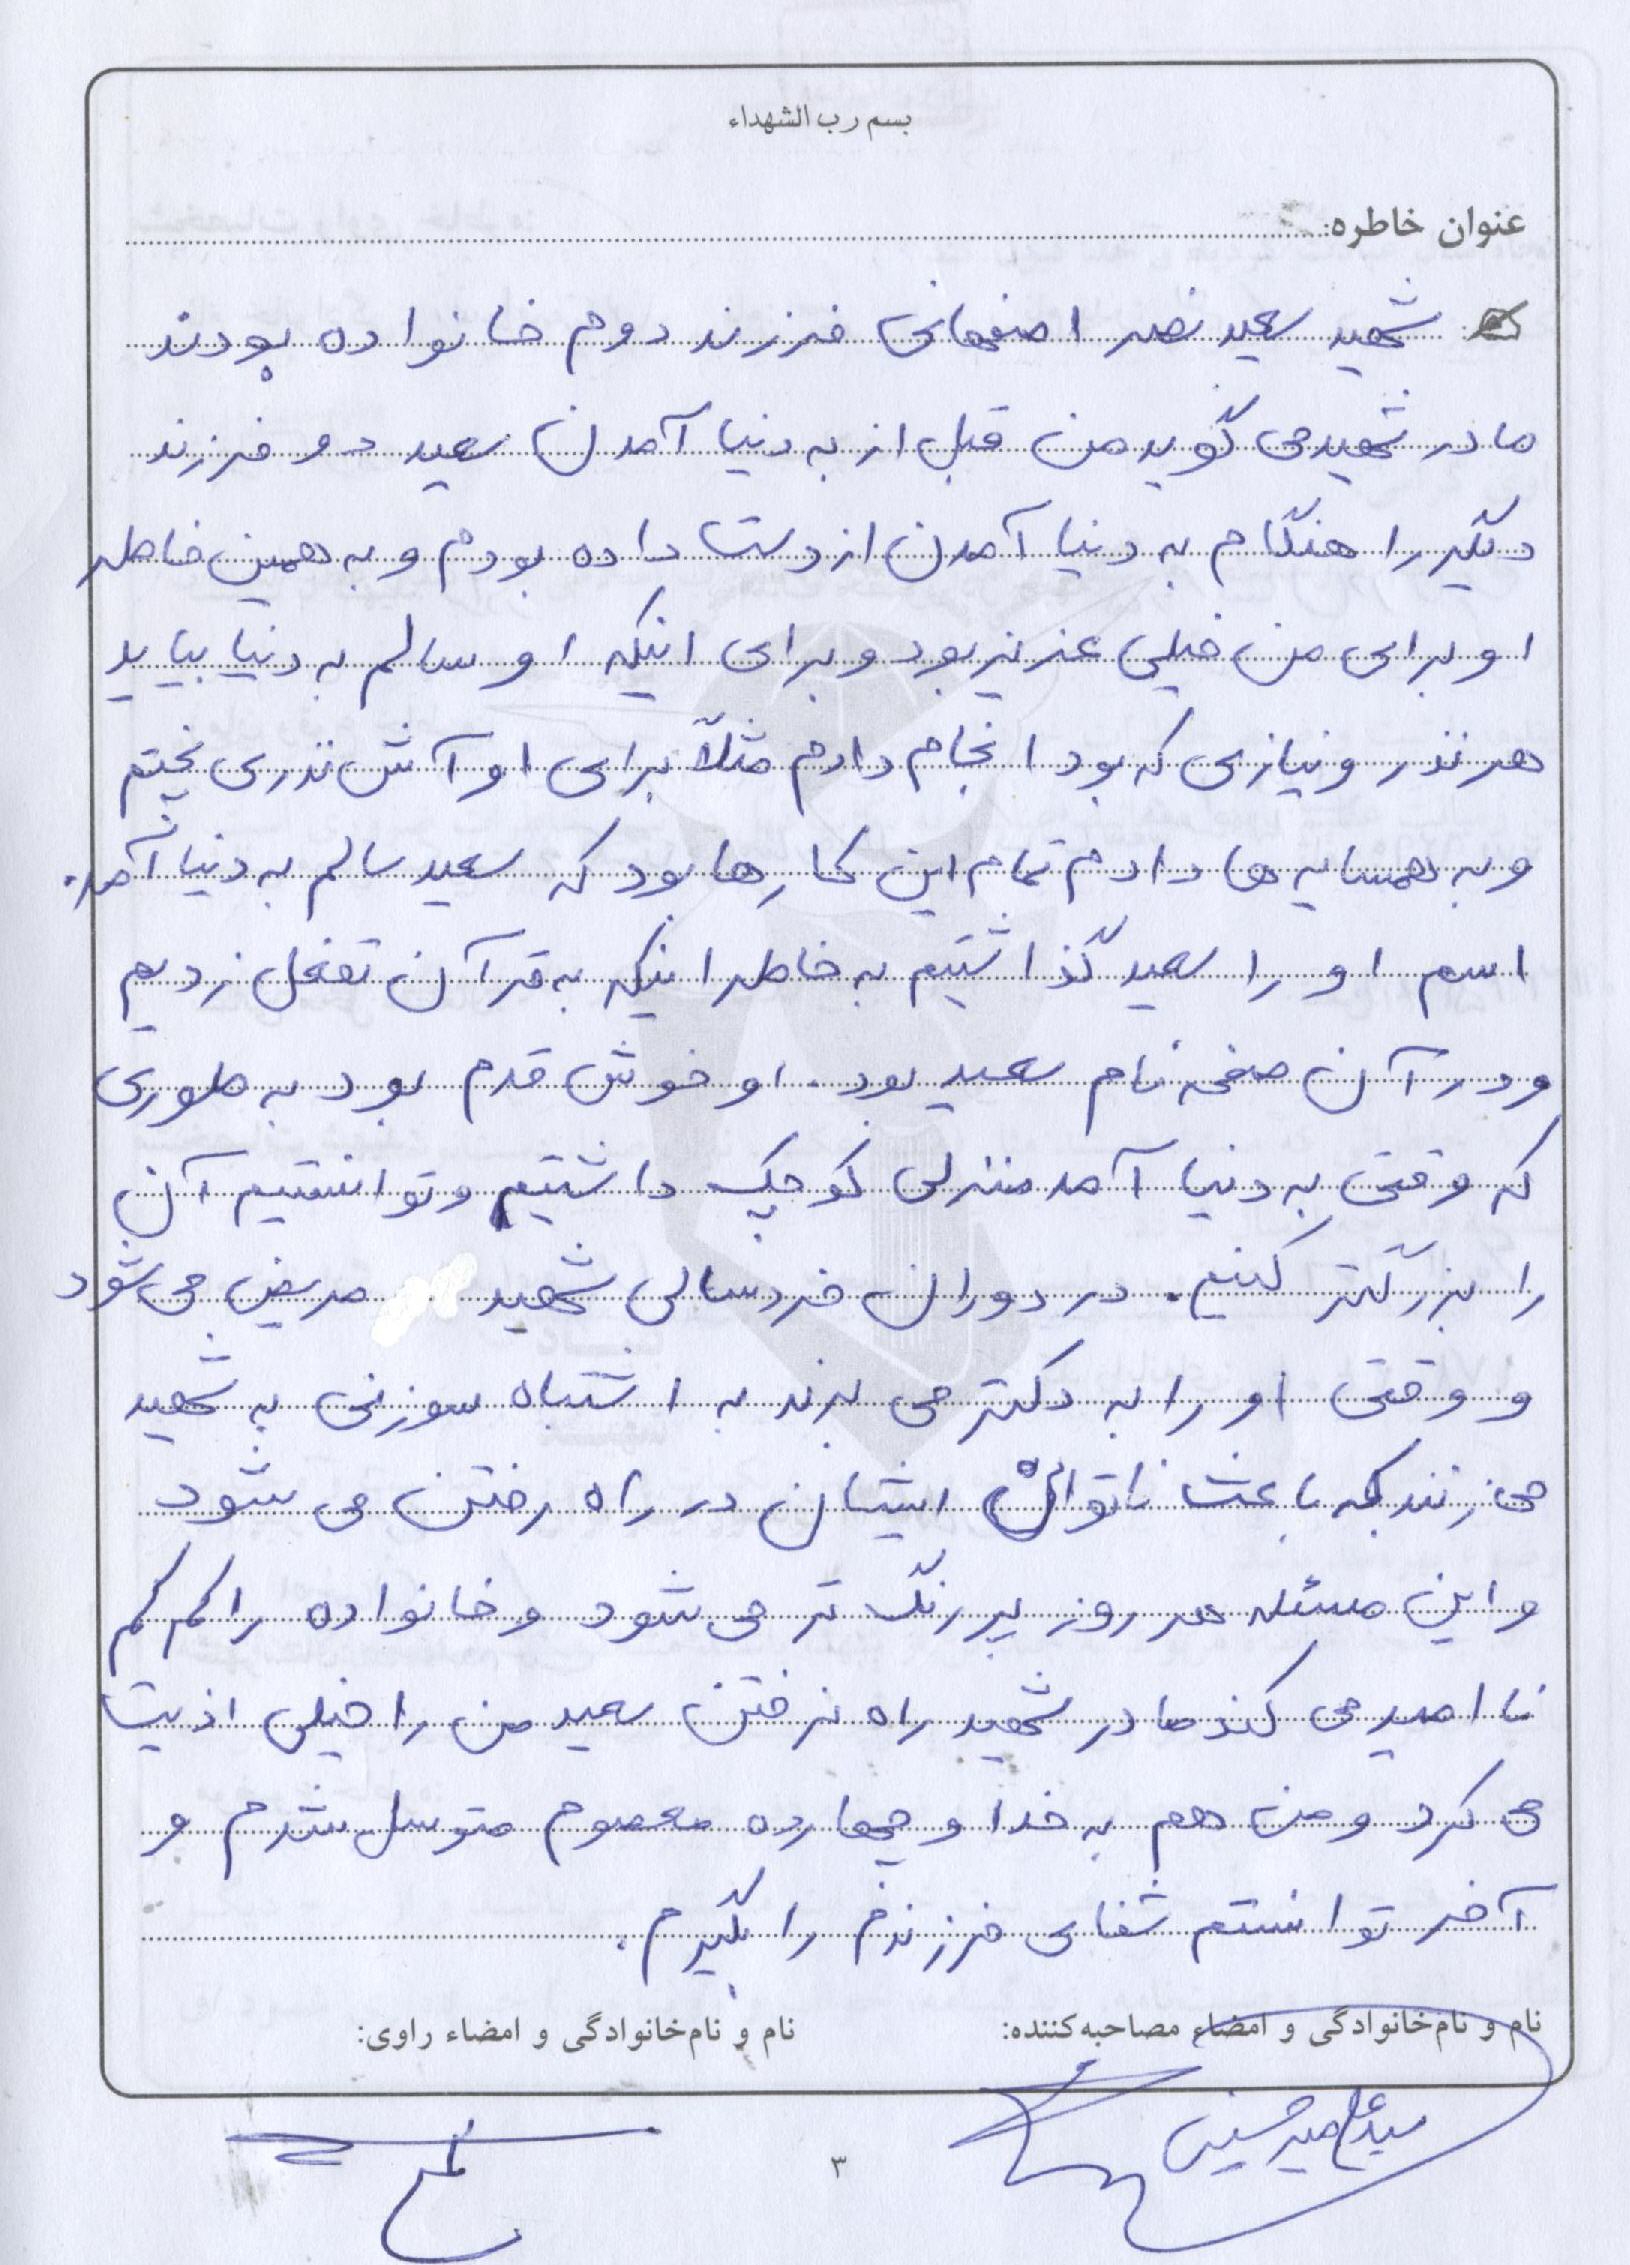 بسم رب الشهداء
عنوان خاطره:
شهید سعید نصر اصفهانی فرزند دوم خانواده بودند
مادر شهید می گوید من قبل از به دنیا آمدن سعید دو فرزند
دیگر را هنگام به دنیا آمدن از دست داده بودم و به همین خاطر
او برای من خیلی عزیز بود و برای اینکه او سالم به دنیا بیاید
هر نذر و نیازی که بود انجام دادم مثلاً برای او آش نذری پختم
و به همسایه ها دادم تمام این کارها بود که سعید سالم به دنیا آمد.
اسم او را سعید گذاشتیم به خاطر اینکه به قرآن تفعل زدیم
و در آن صفحه نام سعید بود. او خوش قدم بود به طوری
که وقتی به دنیا آمد منزلی کوچک داشتیم و توانستیم آن
را بزرگتر کنیم. در دوران خردسالی شهید مریض می شود
و وقتی او را به دکتر می برند به اشتباه سوزنی به شهید
می زنند که باعث ناتوان ایشان در راه رفتن می شود
و این مسئله هر روز پررنگ تر می شود و خانواده را کم کم
نا امید می کند مادر شهید راه نرفتن سعید من را خیلی اذیت
می کرد و من هم به خدا و چهارده معصوم متوسل شدم و
آخر توانستم شفای فرزندم را بگیرم.
نام و نام‌خانوادگی و امضاء مصاحبه‌کننده:
نام و نام‌خانوادگی و امضاء راوی:
۳